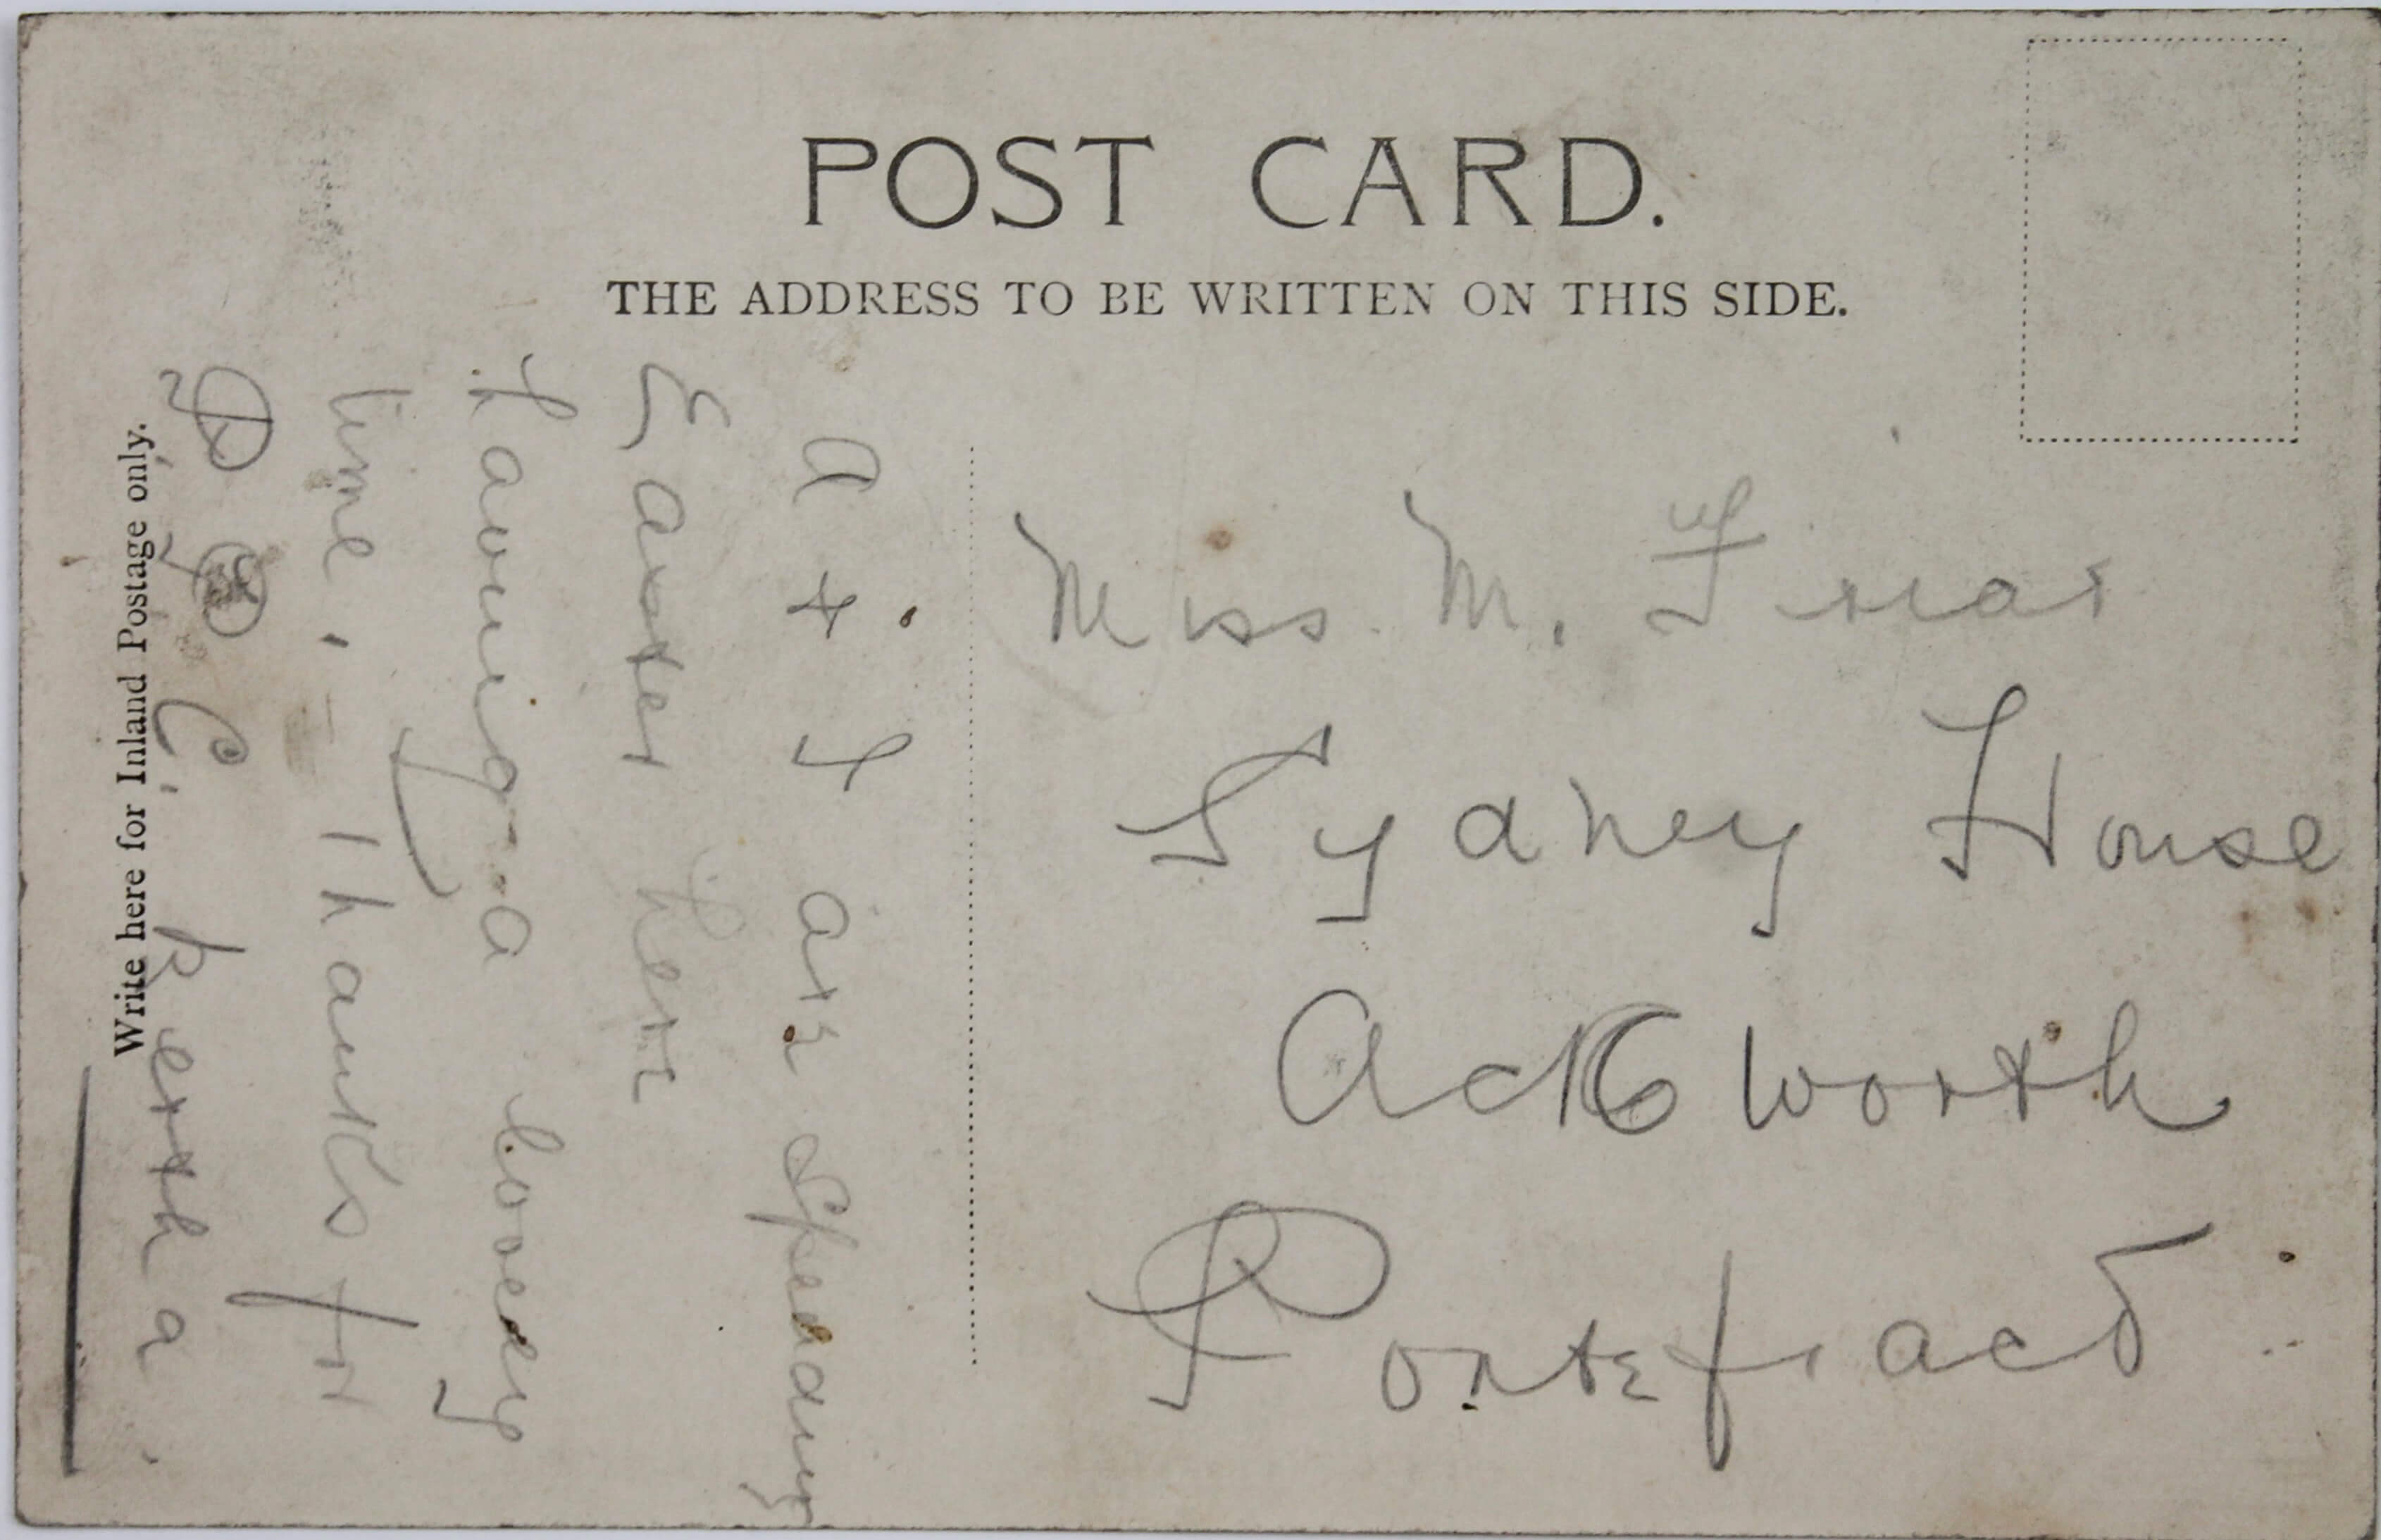 POST CARD.
THE ADDRESS TO BE WRITTEN ON THIS SIDE.
Write here for Inland Postage only.
A + I are spending
Easter here
having a lovely
time, - Thanks for
P. P. C. Bertha.
Miss M. Friar
Sydney House
Ackworth
Pontefract